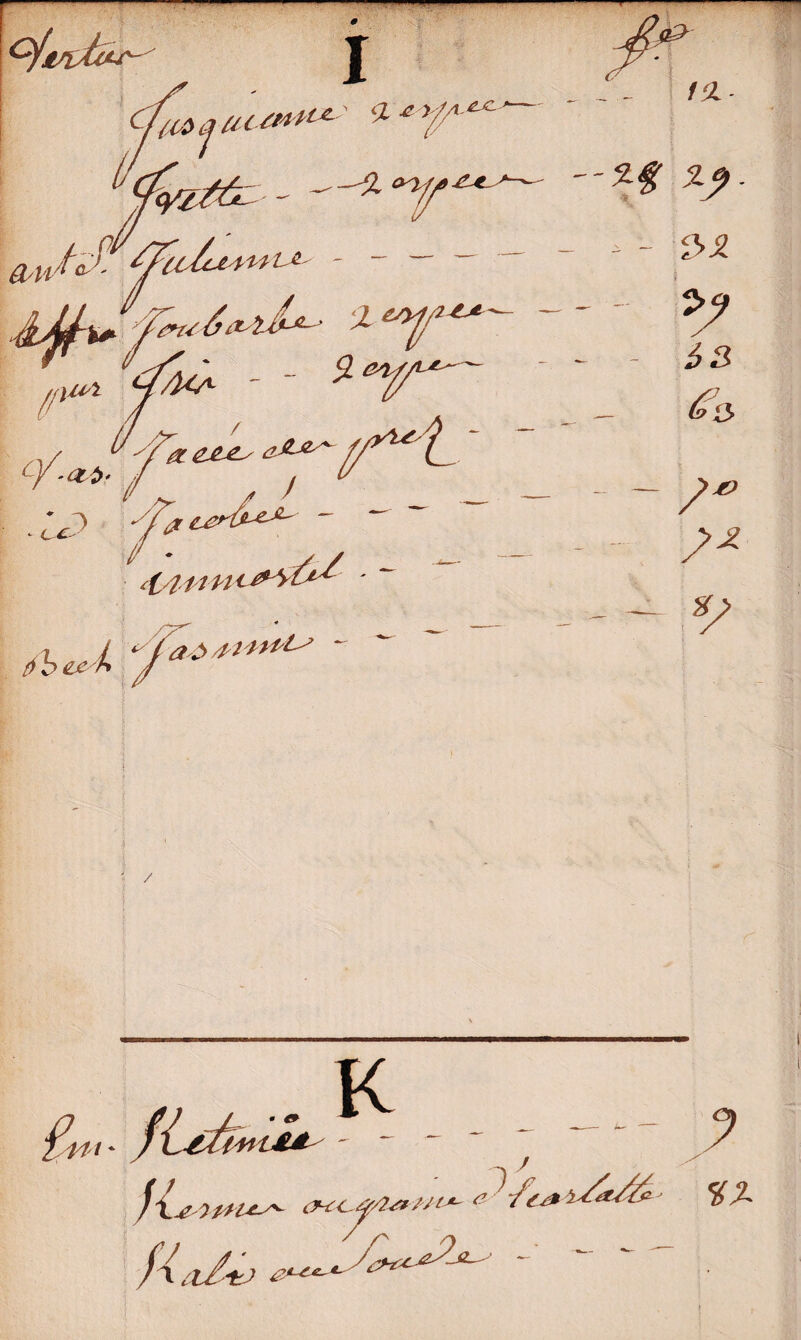 Vertus I f.º
Jusquiame 2 especes - - - 12.
Jvette - - - 2 especes - - 28 29.
ant s. Julienne - - - - - - - - 32
Joubarbe 2 especes - - - 39
pur Jris - - 2 espes - - - 53
V. as. Jaceé des prez - - - - 63
id Jacobeé - - - - - - - 70
immortel . - - - - - 72
Bech Jasmin - - - - - - 87
K
Em. Ketmiée - - - - - - - - 9
Kermes ou graine d'Ecarlatte 82
Kali ou Soude - - - -